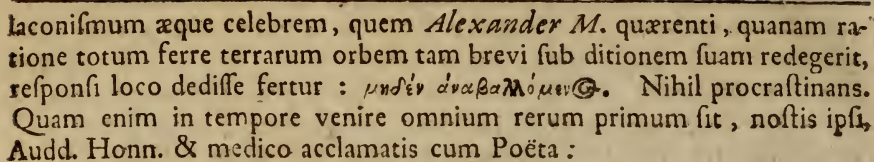 laconiſmum æque celebrem, quem Alexander M. quærenti, quanam ra-
tione totum ferre terrarum orbem tam brevi ſub ditionem ſuam redegerit,
reſponſi loco dediſſe fertur : μηδὲν ἀναβαλλόμενος. Nihil procraſtinans.
Quam enim in tempore venire omnium rerum primum ſit, noſtis ipſi,
Audd. Honn. & medico acclamatis cum Poëta :